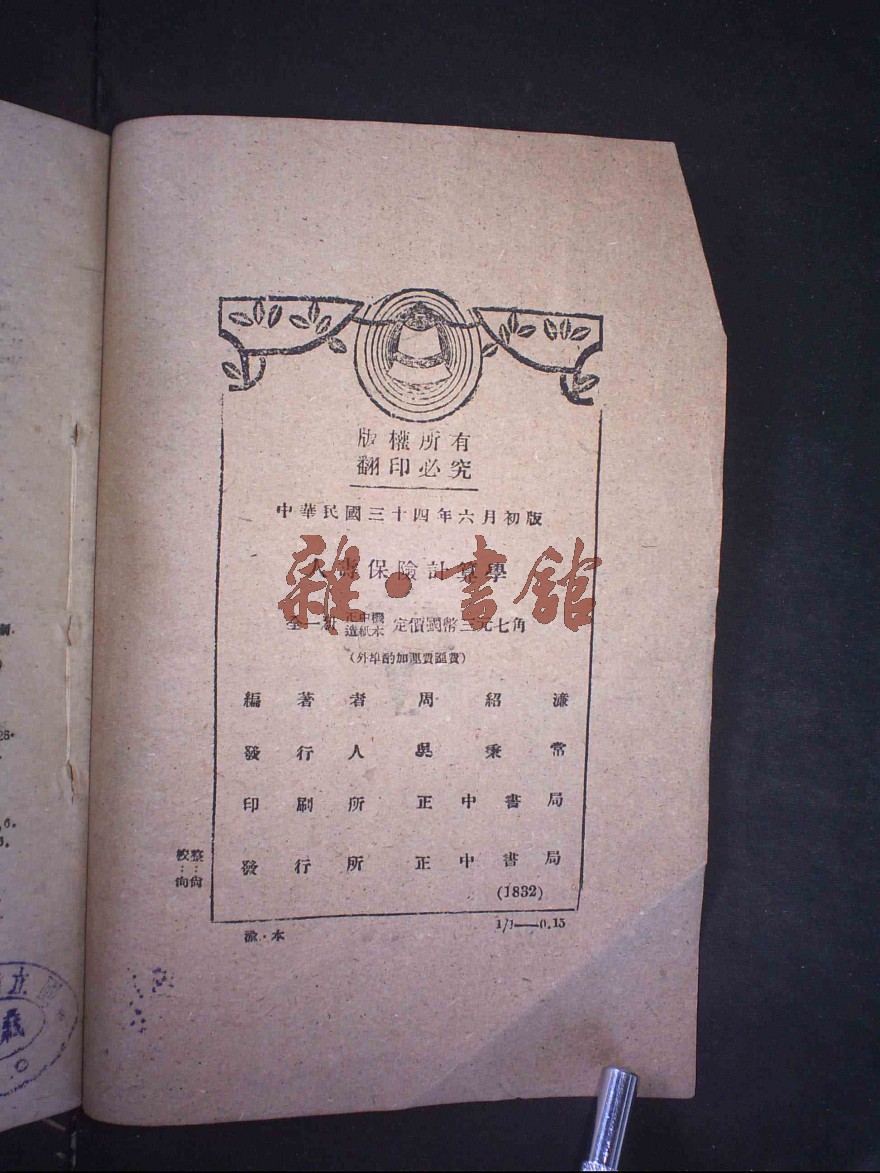 版權所有
翻印必究
中華民國三十四年六月初版
人壽保險計算學
雜·書館
全一冊 正中機造木紙 定價國幣三元七角
(外埠酌加運費匯費)
編著者 周紹濂
發行人 吳秉常
印刷所 正中書局
發行所 正中書局
(1832)
整:尙
校:向
渝·本
1/1——0.15